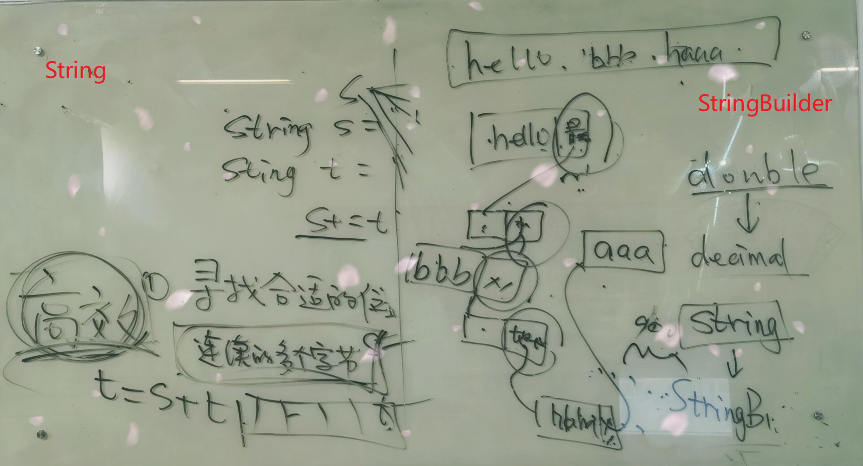 String
String s=
Sting t =
S+=t
高效
①
寻找合适的位
连续的多个字节
t=S+t
hello. bbb. haaa.
StringBuilder
hello
double
decimal
bbb
aaa
string
StringB